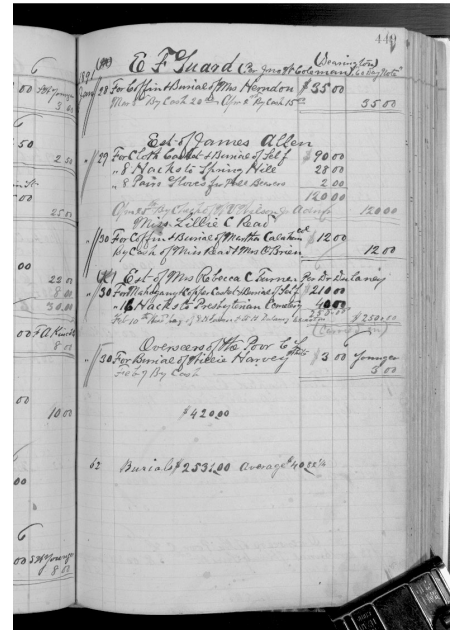 440
6
1891
(Dearington)
E F Guard (Per Jno H Coleman) 60 day Note
Jany 28 For Coffin & Burial of Mrs Herndon $35 00
Mar By Cash 20 00 Apr 8th By Cash 15 00 35 00
Est of James Allen
" 29 For Cloth Casket & Burial of Self $90 00
" 8 Hacks to Spring Hill 28 00
" 8 Pair Gloves for Pall Bearers 2 00
120 00
By Cash 120 00
Miss Lillie C Read
" 30 For Coffin & Burial of Martha Calahan Col $12 00
By Cash of Miss Read & Mrs O'Brien 12 00
Est of Mrs Rebecca C Turner Per Dr Dulaney
" 30 For Mahogany Copper Casket & Burial of Self $210 00
" 16 Hacks to Presbyterian Cemetery 40 00
250 00
Feb 10th $250 00
Overseers of the Poor
" 30 For Burial of Willie Harvey White $3 00 Younger
Feb 9 By Cash 3 00
$420.00
62 Burials $2531.00 Average $40.82 1/4
50
2 50
25 00
00
25 00
8 00
30 00
00 F A Krise
8 00
10 00
00
6
8 00